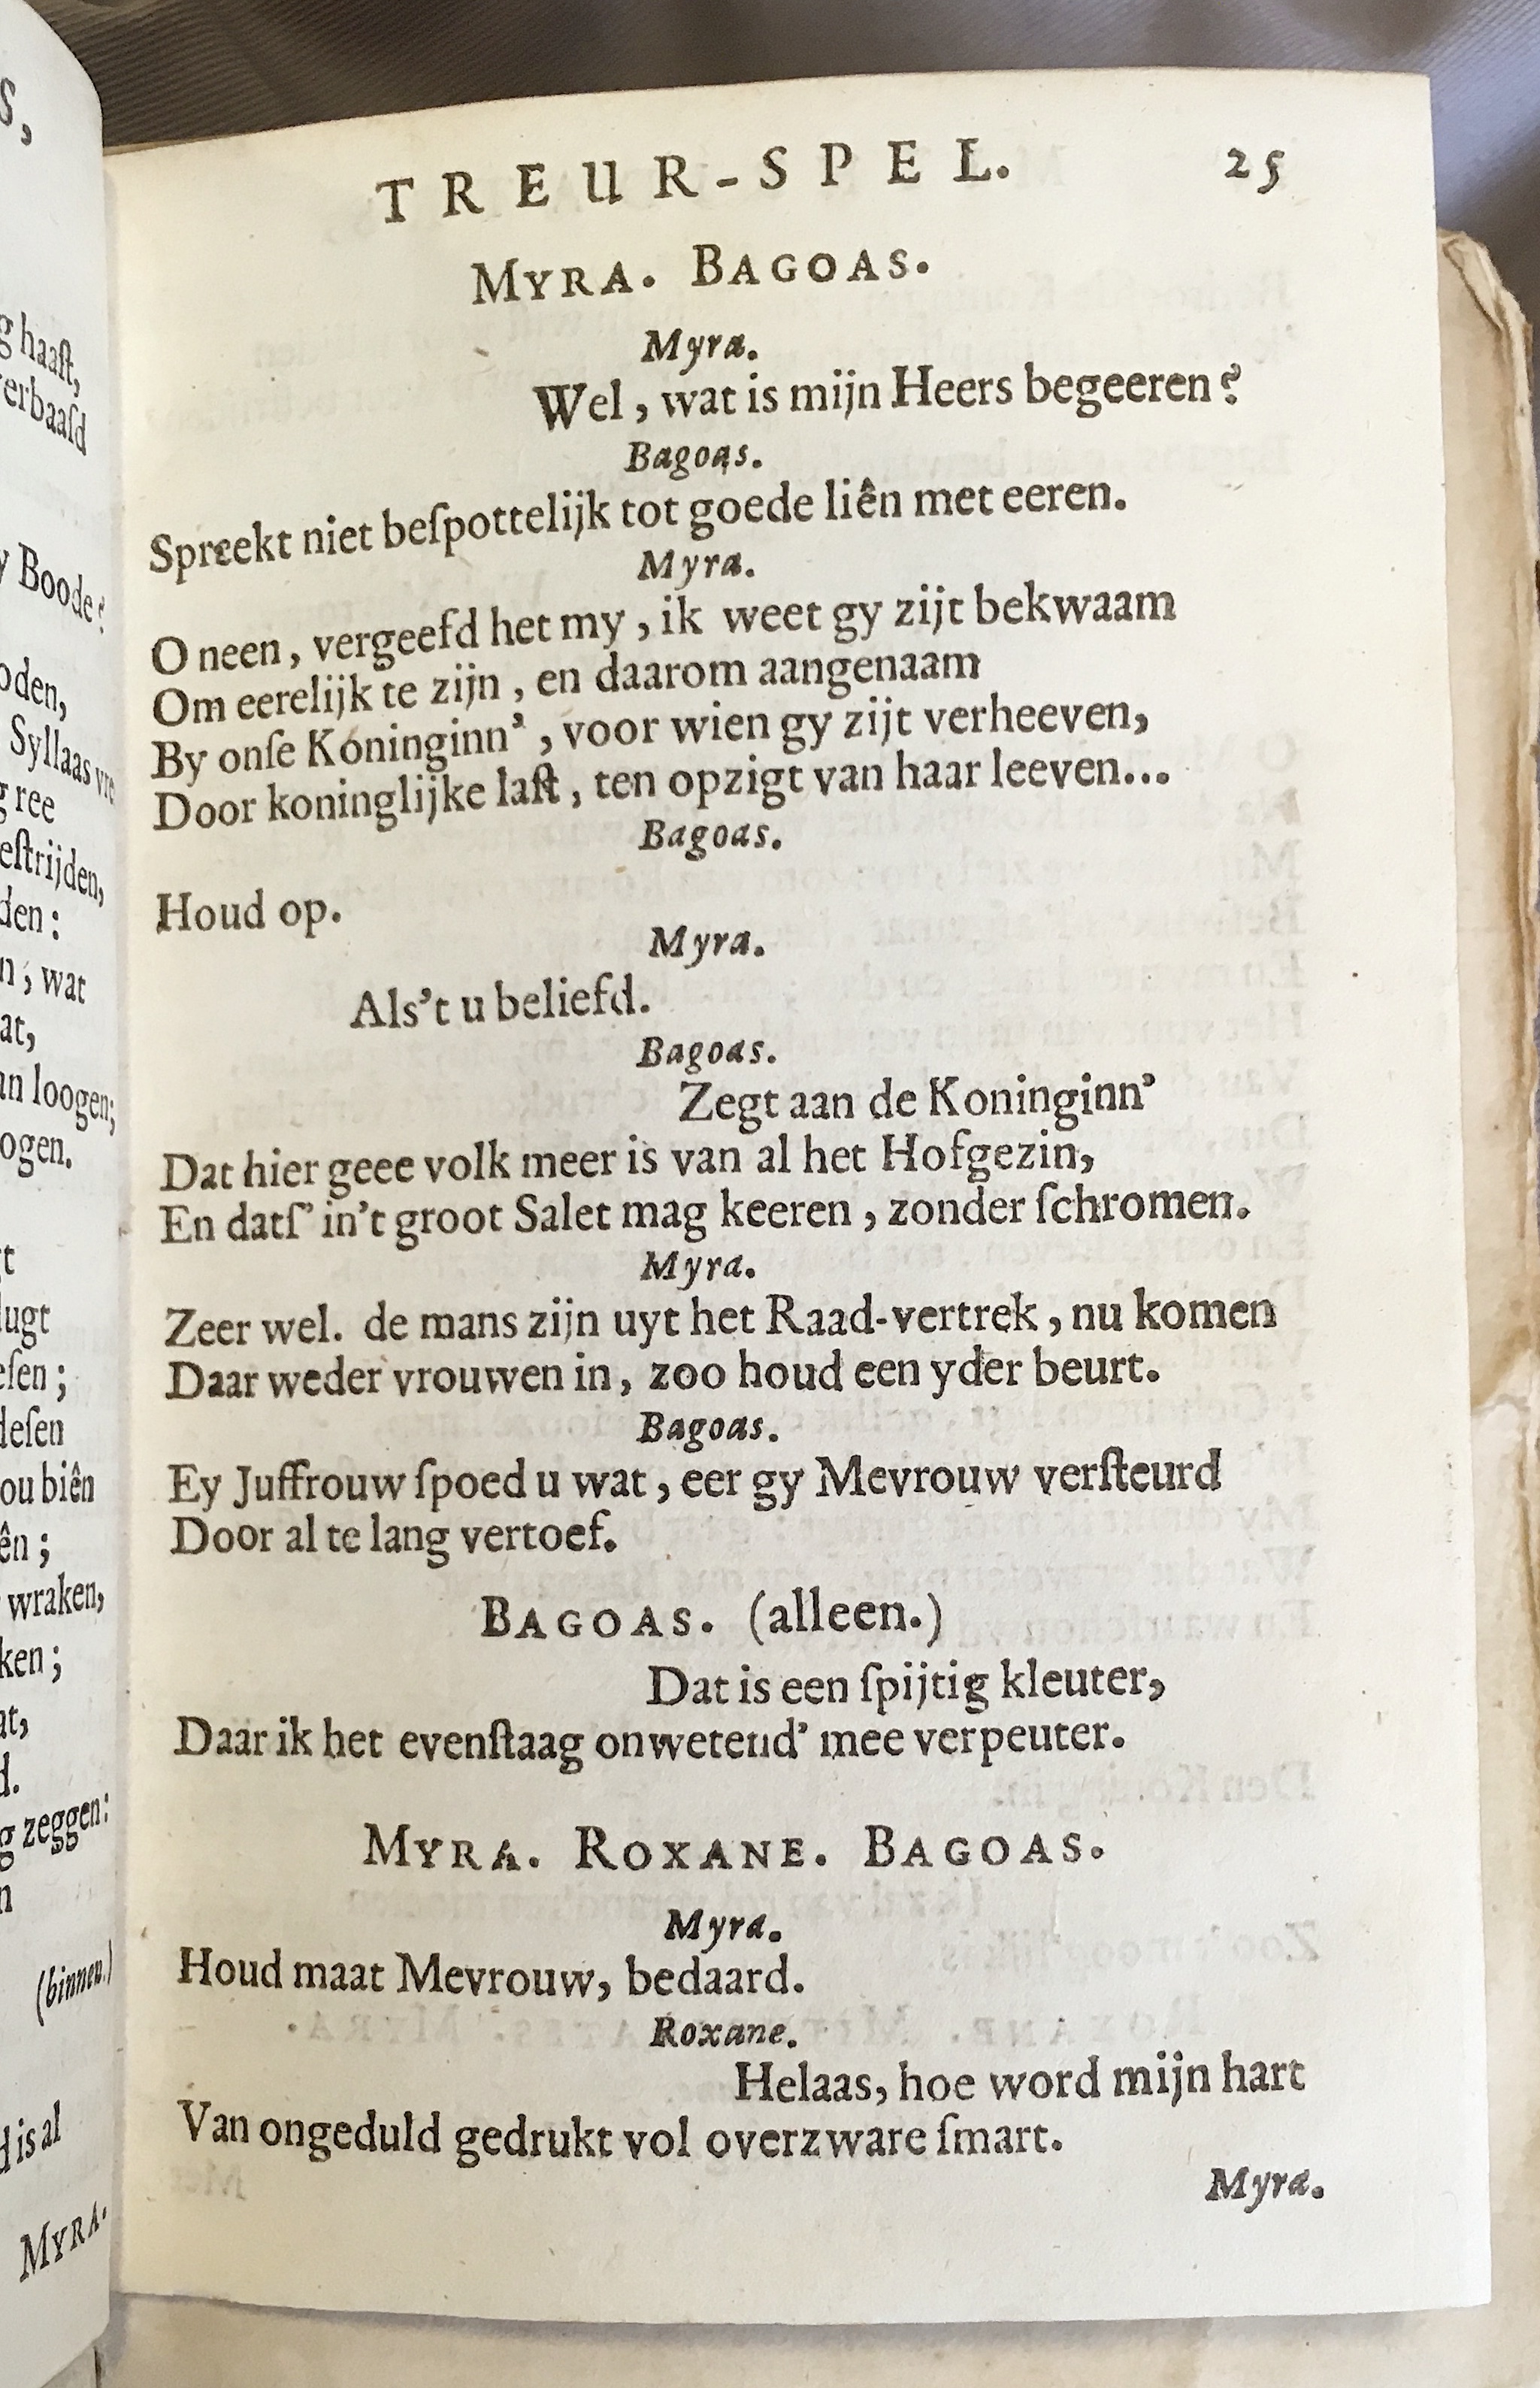 S,
g haaſt,
erbaaſd
y Boode?
oden,
Syllaas vre
g ree
eſtrijden,
den:
n; wat
at,
an loogen;
ogen.
t
lugt
eſen;
deſen
ou biên
ên;
wraken,
ken;
at,
d.
g zeggen:
n
(binnen.)
d is al
MYRA.
TREUR-SPEL. 25
MYRA. BAGOAS.
Myra.
Wel, wat is mijn Heers begeeren?
Bagoas.
Spreekt niet beſpottelijk tot goede liên met eeren.
Myra.
O neen, vergeefd het my, ik weet gy zijt bekwaam
Om eerelijk te zijn, en daarom aangenaam
By onſe Koninginn', voor wien gy zijt verheeven,
Door koninglijke laſt, ten opzigt van haar leeven...
Bagoas.
Houd op.
Myra.
Als't u beliefd.
Bagoas.
Zegt aan de Koninginn'
Dat hier geee volk meer is van al het Hofgezin,
En datſ' in't groot Salet mag keeren, zonder ſchromen.
Myra.
Zeer wel. de mans zijn uyt het Raad-vertrek, nu komen
Daar weder vrouwen in, zoo houd een yder beurt.
Bagoas.
Ey Juffrouw ſpoed u wat, eer gy Mevrouw verſteurd
Door al te lang vertoef.
BAGOAS. (alleen.)
Dat is een ſpijtig kleuter,
Daar ik het evenſtaag onwetend' mee verpeuter.
MYRA. ROXANE. BAGOAS.
Myra.
Houd maat Mevrouw, bedaard.
Roxane.
Helaas, hoe word mijn hart
Van ongeduld gedrukt vol overzware ſmart.
Myra.